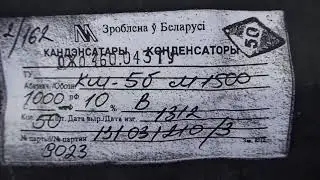 2/162
Зроблена ў Беларусі
КАНДЭНСАТАРЫ КОНДЕНСАТОРЫ
50
ОЖ0.460.043ТУ
ТУ
Абазнач./Обозн. КМ-5б М1500
1000 пф 10 % В
Кол. 50 Дата выр./Дата изг. 1312
№ партыі/№ партии 131031210/3
9023